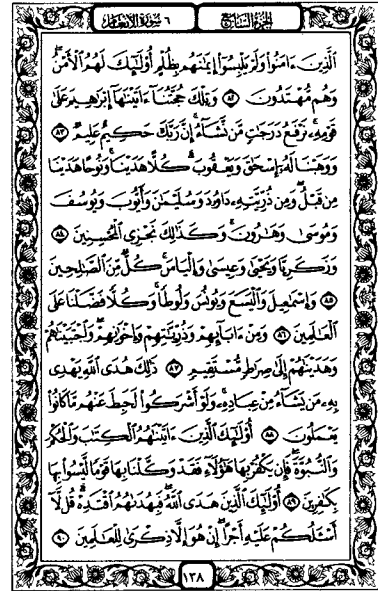 الجزء السابع
٦ سورة الأنعام
الَّذِينَ ءَامَنُوا۟ وَلَمْ يَلْبِسُوٓا۟ إِيمَٰنَهُم بِظُلْمٍ أُو۟لَٰٓئِكَ لَهُمُ ٱلْأَمْنُ
وَهُم مُّهْتَدُونَ ٨٢ وَتِلْكَ حُجَّتُنَآ ءَاتَيْنَٰهَآ إِبْرَٰهِيمَ عَلَىٰ
قَوْمِهِۦ نَرْفَعُ دَرَجَٰتٍ مَّن نَّشَآءُ إِنَّ رَبَّكَ حَكِيمٌ عَلِيمٌ ٨٣
وَوَهَبْنَا لَهُۥٓ إِسْحَٰقَ وَيَعْقُوبَ كُلًّا هَدَيْنَا وَنُوحًا هَدَيْنَا
مِن قَبْلُ وَمِن ذُرِّيَّتِهِۦ دَاوُۥدَ وَسُلَيْمَٰنَ وَأَيُّوبَ وَيُوسُفَ
وَمُوسَىٰ وَهَٰرُونَ وَكَذَٰلِكَ نَجْزِى ٱلْمُحْسِنِينَ ٨٤
وَزَكَرِيَّا وَيَحْيَىٰ وَعِيسَىٰ وَإِلْيَاسَ كُلٌّ مِّنَ ٱلصَّٰلِحِينَ
٨٥ وَإِسْمَٰعِيلَ وَٱلْيَسَعَ وَيُونُسَ وَلُوطًا وَكُلًّا فَضَّلْنَا عَلَى
ٱلْعَٰلَمِينَ ٨٦ وَمِنْ ءَابَآئِهِمْ وَذُرِّيَّٰتِهِمْ وَإِخْوَٰنِهِمْ وَٱجْتَبَيْنَٰهُمْ
وَهَدَيْنَٰهُمْ إِلَىٰ صِرَٰطٍ مُّسْتَقِيمٍ ٨٧ ذَٰلِكَ هُدَى ٱللَّهِ يَهْدِى
بِهِۦ مَن يَشَآءُ مِنْ عِبَادِهِۦ وَلَوْ أَشْرَكُوا۟ لَحَبِطَ عَنْهُم مَّا كَانُوا۟
يَعْمَلُونَ ٨٨ أُو۟لَٰٓئِكَ ٱلَّذِينَ ءَاتَيْنَٰهُمُ ٱلْكِتَٰبَ وَٱلْحُكْمَ
وَٱلنُّبُوَّةَ فَإِن يَكْفُرْ بِهَا هَٰٓؤُلَآءِ فَقَدْ وَكَّلْنَا بِهَا قَوْمًا لَّيْسُوا۟ بِهَا
بِكَٰفِرِينَ ٨٩ أُو۟لَٰٓئِكَ ٱلَّذِينَ هَدَى ٱللَّهُ فَبِهُدَىٰهُمُ ٱقْتَدِهْ قُل لَّآ
أَسْـَٔلُكُمْ عَلَيْهِ أَجْرًا إِنْ هُوَ إِلَّا ذِكْرَىٰ لِلْعَٰلَمِينَ ٩٠
١٣٨